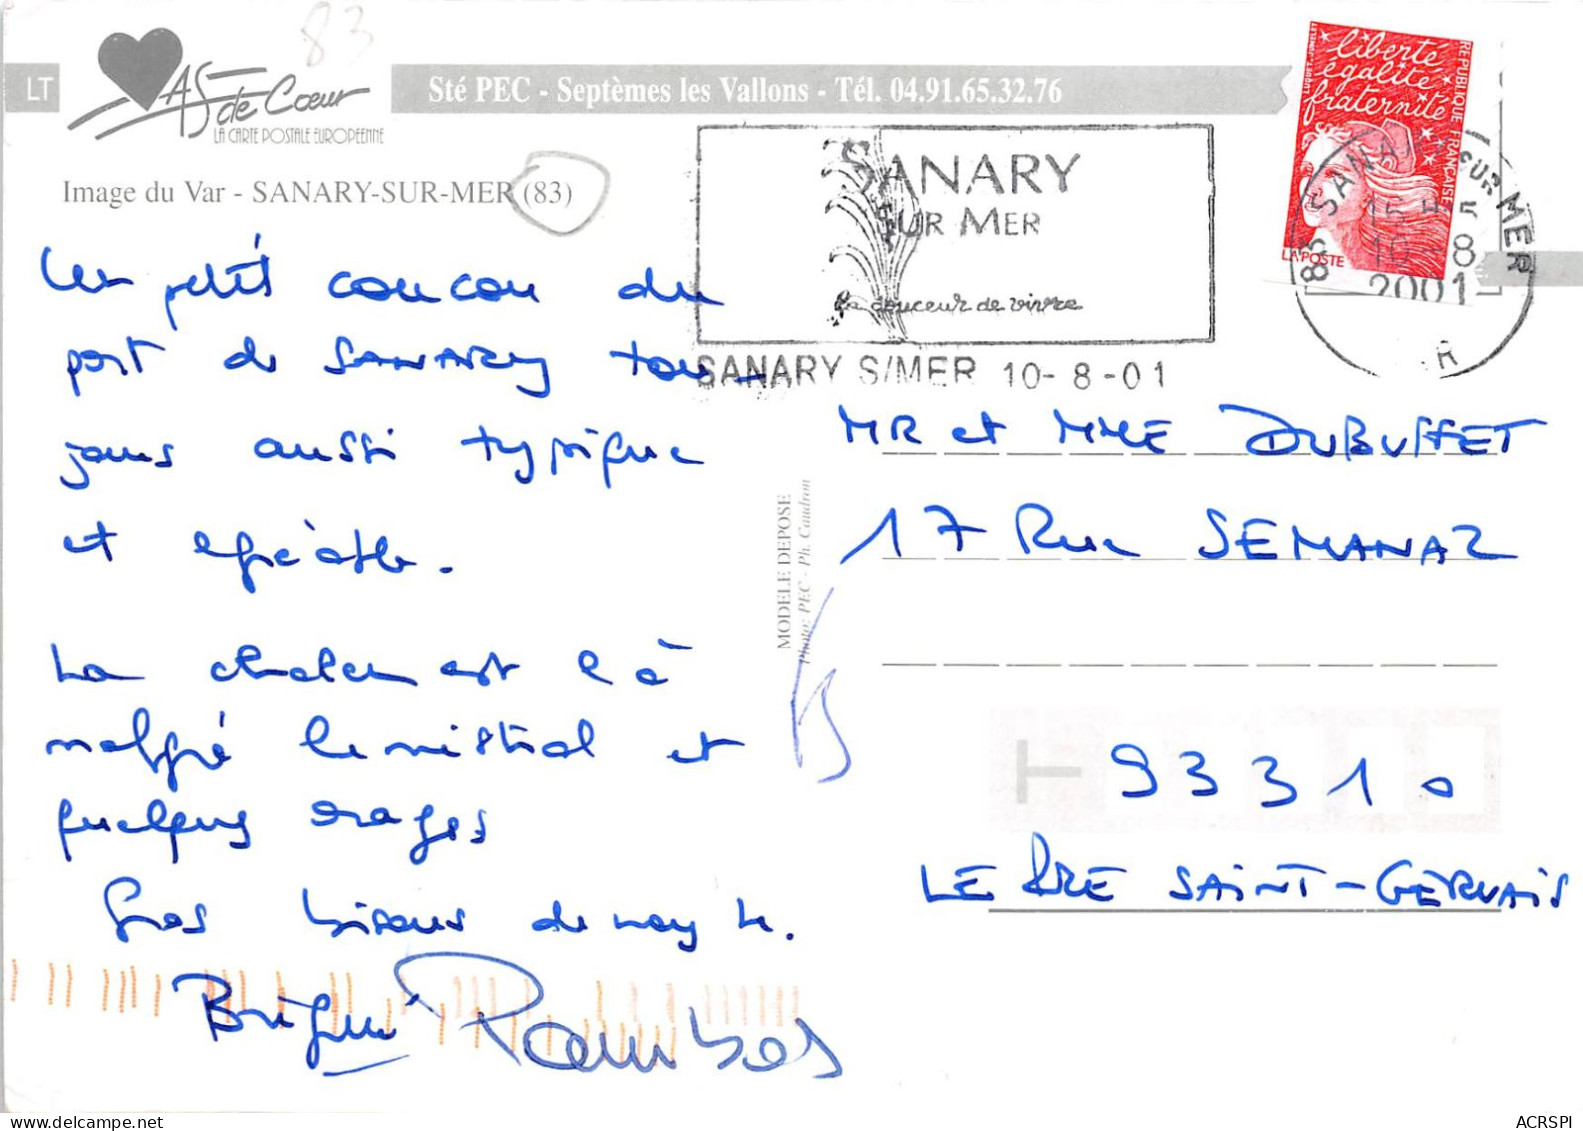 83
LT
AS de Cœur
LA CARTE POSTALE EUROPEENNE
Sté PEC - Septèmes les Vallons - Tél. 04.91.65.32.76
Image du Var - SANARY-SUR-MER (83)
liberté
égalité
fraternité
REPUBLIQUE FRANÇAISE
LA POSTE
83 SANARY SUR MER
15H 5
10-8
2001
SANARY
SUR MER
la douceur de vivre
SANARY S/MER 10-8-01
Un petit coucou du
port de SANARY tou-
jours aussi typique
et agréable.
La chaleur est là
malgré le mistral et
quelques orages
Gros bisous de
Brigitte
MODELE DEPOSE
Photo: PEC - Ph. Caudron
MR et MME DUBUFFET
17 Rue SEMANAZ
93310
LE PRE SAINT-GERVAIS
ACRSPI